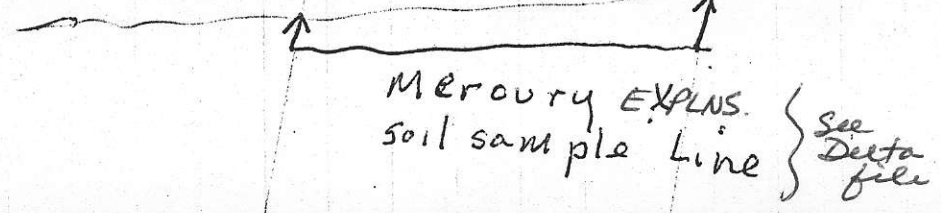 Mercury EXPLNS.
soil sample Line
See
Delta
file